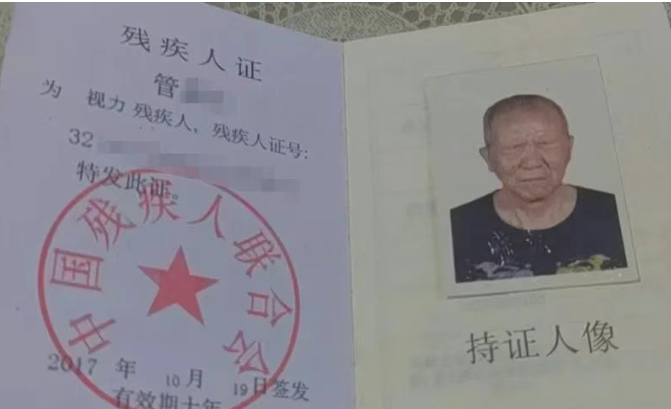 残疾人证
管
为 视力 残疾人，残疾人证号：
32
特发此证。
中国残疾人联合会
2017 年 10 月 19 日签发
有效期十年
持证人像